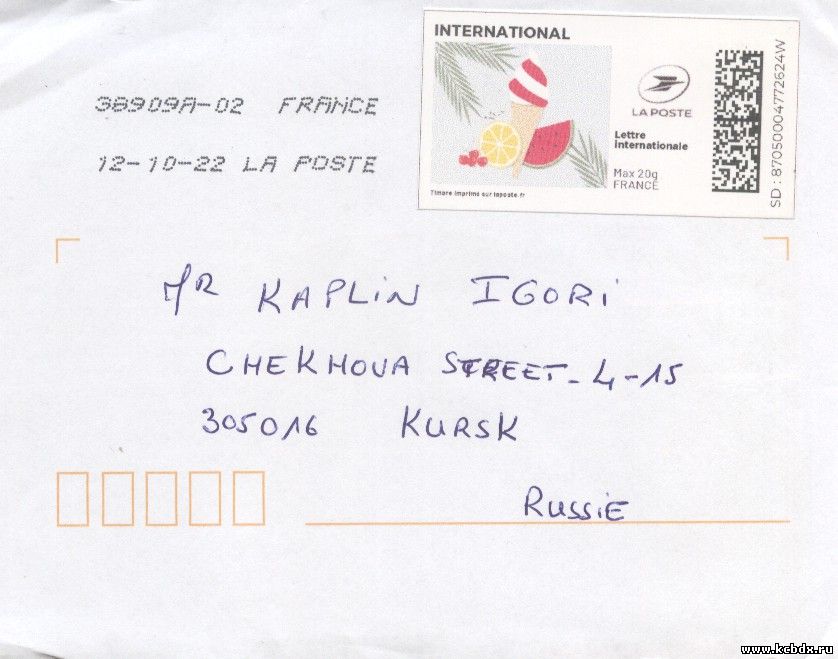 INTERNATIONAL
LA POSTE
Lettre
Internationale
Max 20g
FRANCE
Timbre imprimé sur laposte.fr
SD : 87050004772624W
38909A-02 FRANCE
12-10-22 LA POSTE
MR KAPLIN IGORI
CHEKHOVA STREET - 4 - 15
305016 KURSK
RUSSIE
www.kcbdx.ru